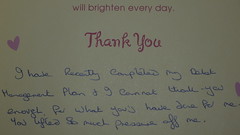 will brighten every day.
Thank You
I have recently completed my Debt
Management Plan & I cannot thank-you
enough for what you've done for me.
You lifted so much pressure off me.